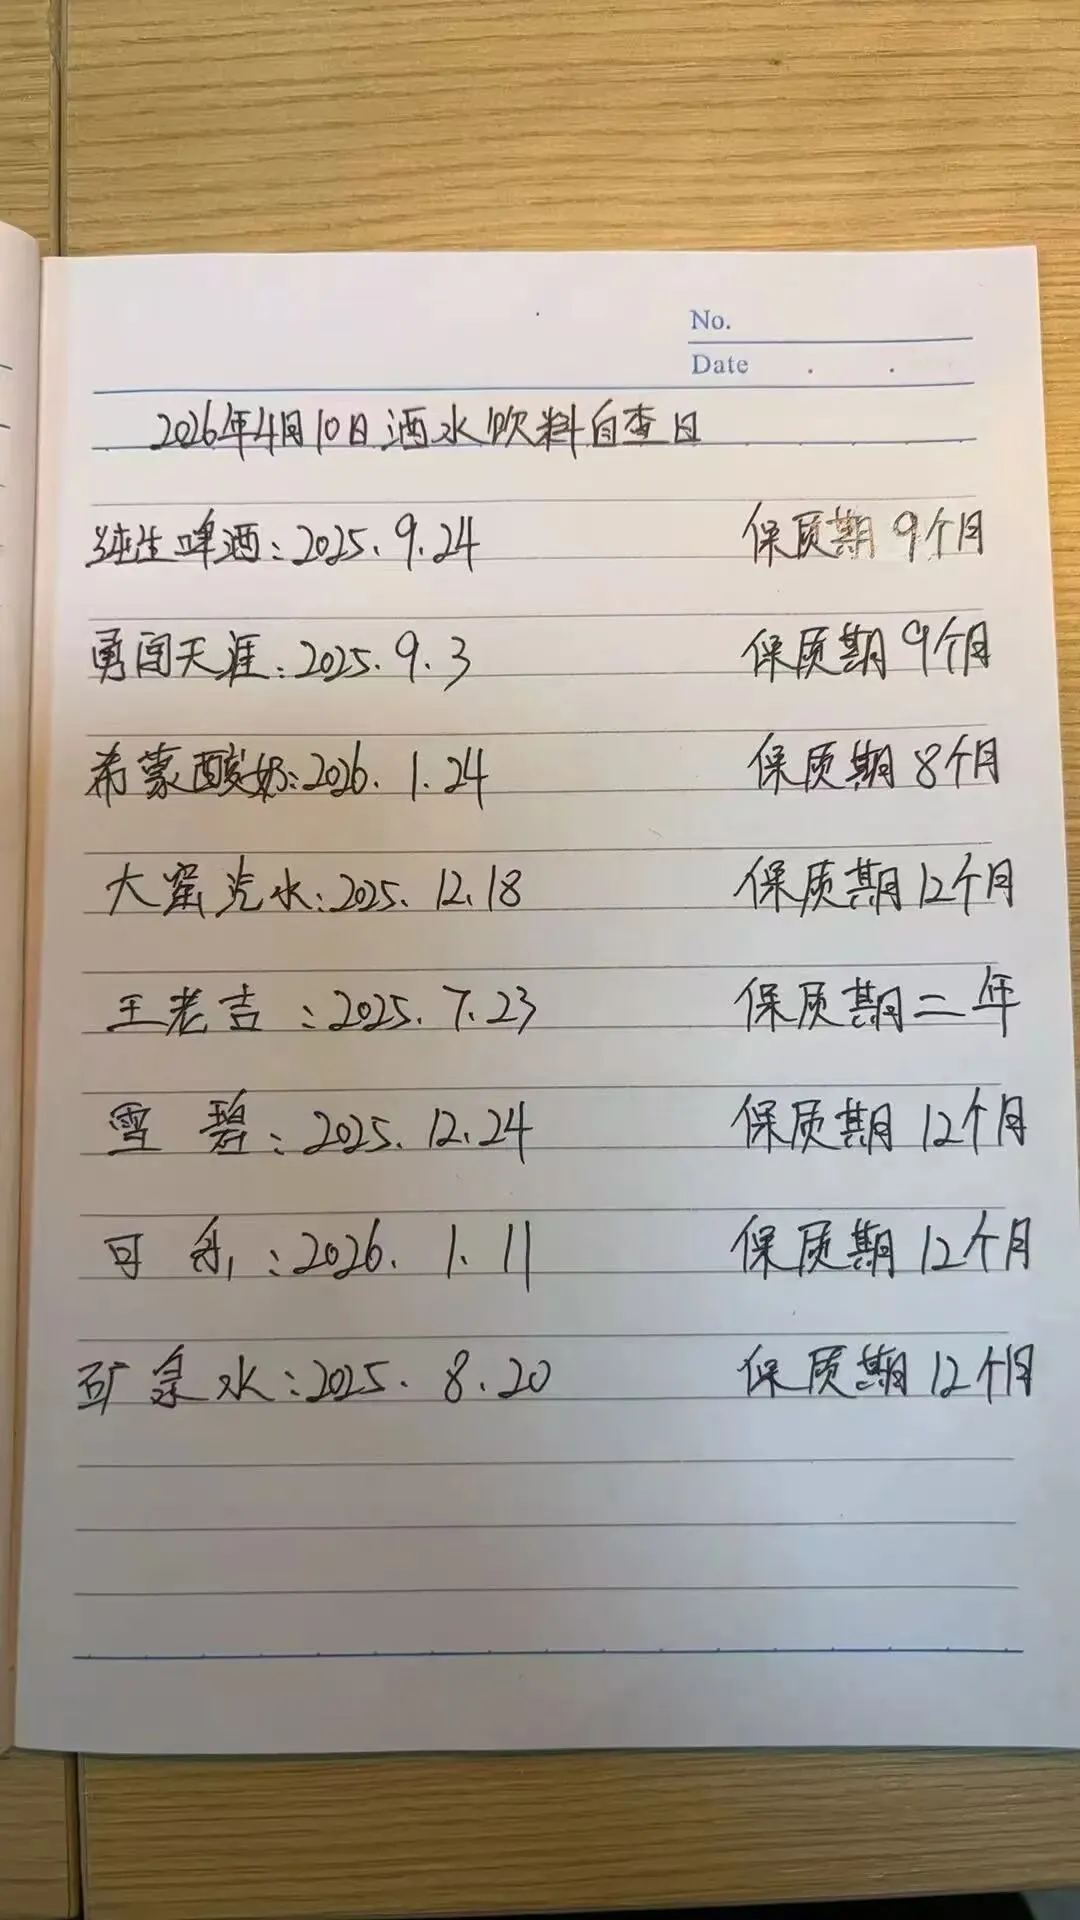 No.
Date . .
2026年4月10日酒水饮料自查日
纯生啤酒:2025.9.24 保质期9个月
勇闯天涯:2025.9.3 保质期9个月
希蒙酸奶:2026.1.24 保质期8个月
大窑汽水:2025.12.18 保质期12个月
王老吉:2025.7.23 保质期二年
雪碧:2025.12.24 保质期12个月
可乐:2026.1.11 保质期12个月
矿泉水:2025.8.20 保质期12个月